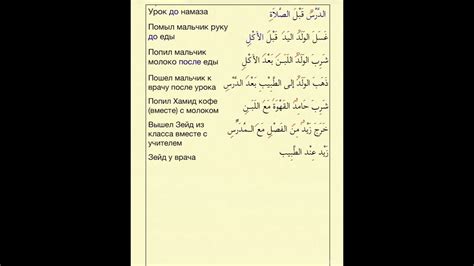 Урок до намаза
الدَّرْسُ قَبْلَ الصَّلَاةِ
Помыл мальчик руку
до еды
غَسَلَ الْوَلَدُ الْيَدَ قَبْلَ الْأَكْلِ
Попил мальчик
молоко после еды
شَرِبَ الْوَلَدُ اللَّبَنَ بَعْدَ الْأَكْلِ
Пошел мальчик к
врачу после урока
ذَهَبَ الْوَلَدُ إِلَى الطَّبِيبِ بَعْدَ الدَّرْسِ
Попил Хамид кофе
(вместе) с молоком
شَرِبَ حَامِدٌ الْقَهْوَةَ مَعَ اللَّبَنِ
Вышел Зейд из
класса вместе с
учителем
خَرَجَ زَيْدٌ مِنَ الْفَصْلِ مَعَ الْمُدَرِّسِ
Зейд у врача
زَيْدٌ عِنْدَ الطَّبِيبِ